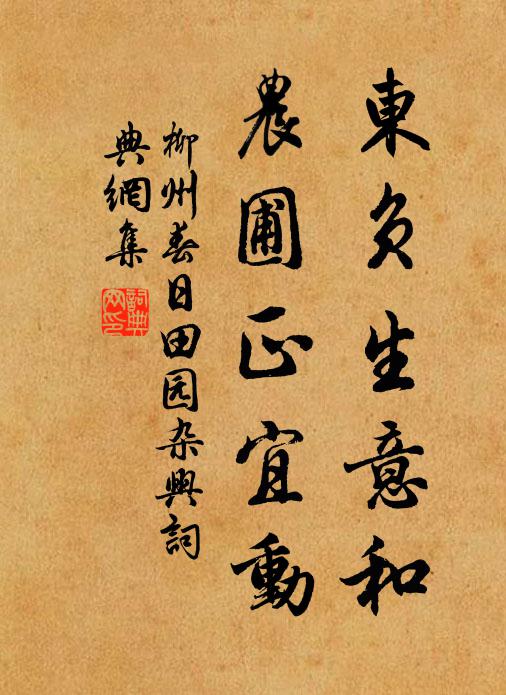 東生意和
農圃正宜動
柳州春日田园杂興詞
典網集
詞典
网印